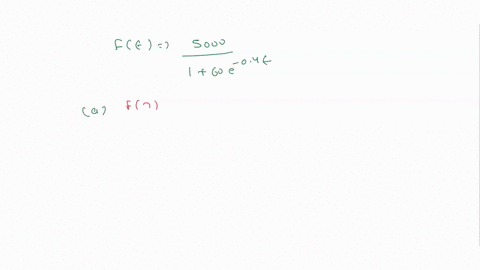 f(t) => 5000 / 1 + 60 e^-0.4t
(a) f(7)